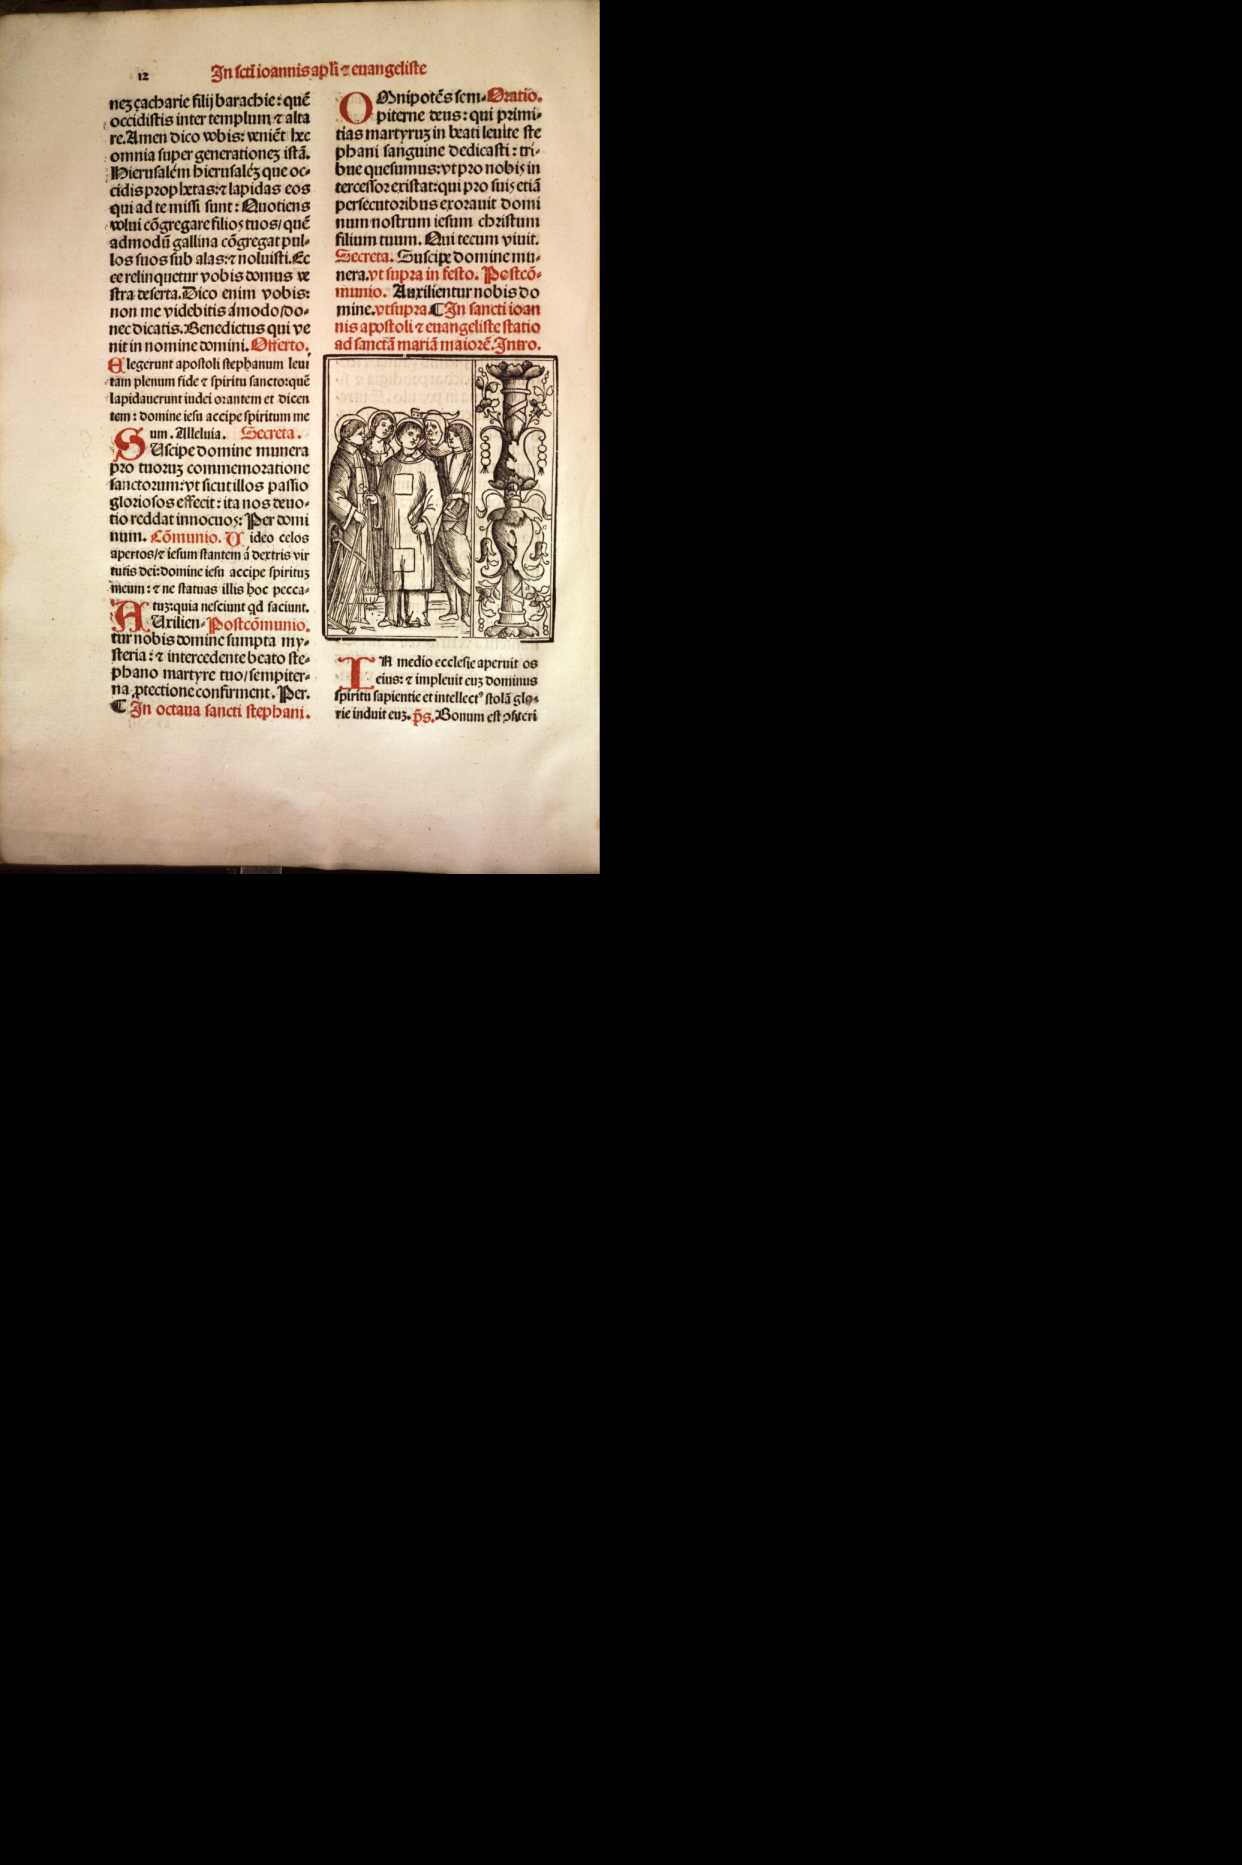 12
In sctī ioannis apl̄i ⁊ euangeliste
neʒ çacharie filij barachie: quē
occidistis inter templum ⁊ alta
re. Amen dico vobis: veniēt hec
omnia super generationeʒ istā.
Hierusalém hierusaléʒ que oc-
cidis prophetas: ⁊ lapidas eos
qui ad te missi sunt: Quotiens
volui cōgregare filios tuos/quē
admodū gallina cōgregat pul-
los suos sub alas: ⁊ noluisti. Ec
ce relinquetur vobis domus ve
stra deserta. Dico enim vobis:
non me videbitis ámodo/do-
nec dicatis. Benedictus qui ve
nit in nomine domini. Offerto.
Elegerunt apostoli stephanum leui
tam plenum fide ⁊ spiritu sancto: quē
lapidauerunt iudei orantem et dicen
tem: domine iesu accipe spiritum me
um. Alleluia. Secreta.
SUscipe domine munera
pro tuoruʒ commemoratione
sanctorum: vt sicut illos passio
gloriosos effecit: ita nos deuo-
tio reddat innocuos: Per domi
num. Cōmunio. Uideo celos
apertos/⁊ iesum stantem á dextris vir
tutis dei: domine iesu accipe spirituʒ
meum: ⁊ ne statuas illis hoc pecca-
tuʒ: quia nesciunt qd faciunt.
AUxilien- Postcōmunio.
tur nobis domine sumpta my-
steria: ⁊ intercedente beato ste-
phano martyre tuo/sempiter-
na ꝓtectione confirment. Per.
¶ In octaua sancti stephani.
OMnipotēs sem- Oratio.
piterne deus: qui primi-
tias martyruʒ in beati leuite ste
phani sanguine dedicasti: tri-
bue quesumus: vt pro nobis in
tercessor existat: qui pro suis etiā
persecutoribus exorauit domi
num nostrum iesum christum
filium tuum. Qui tecum viuit.
Secreta. Suscipe domine mu-
nera. vt supra in festo. Postcō-
munio. Auxilientur nobis do
mine. vt supra ¶ In sancti ioan
nis apostoli ⁊ euangeliste statio
ad sanctā mariā maiorē. Intro.
IN medio ecclesie aperuit os
eius: ⁊ impleuit euʒ dominus
spiritu sapientie et intellectꝰ stolā glo-
rie induit euʒ. p̄s. Bonum est ꝯfiteri